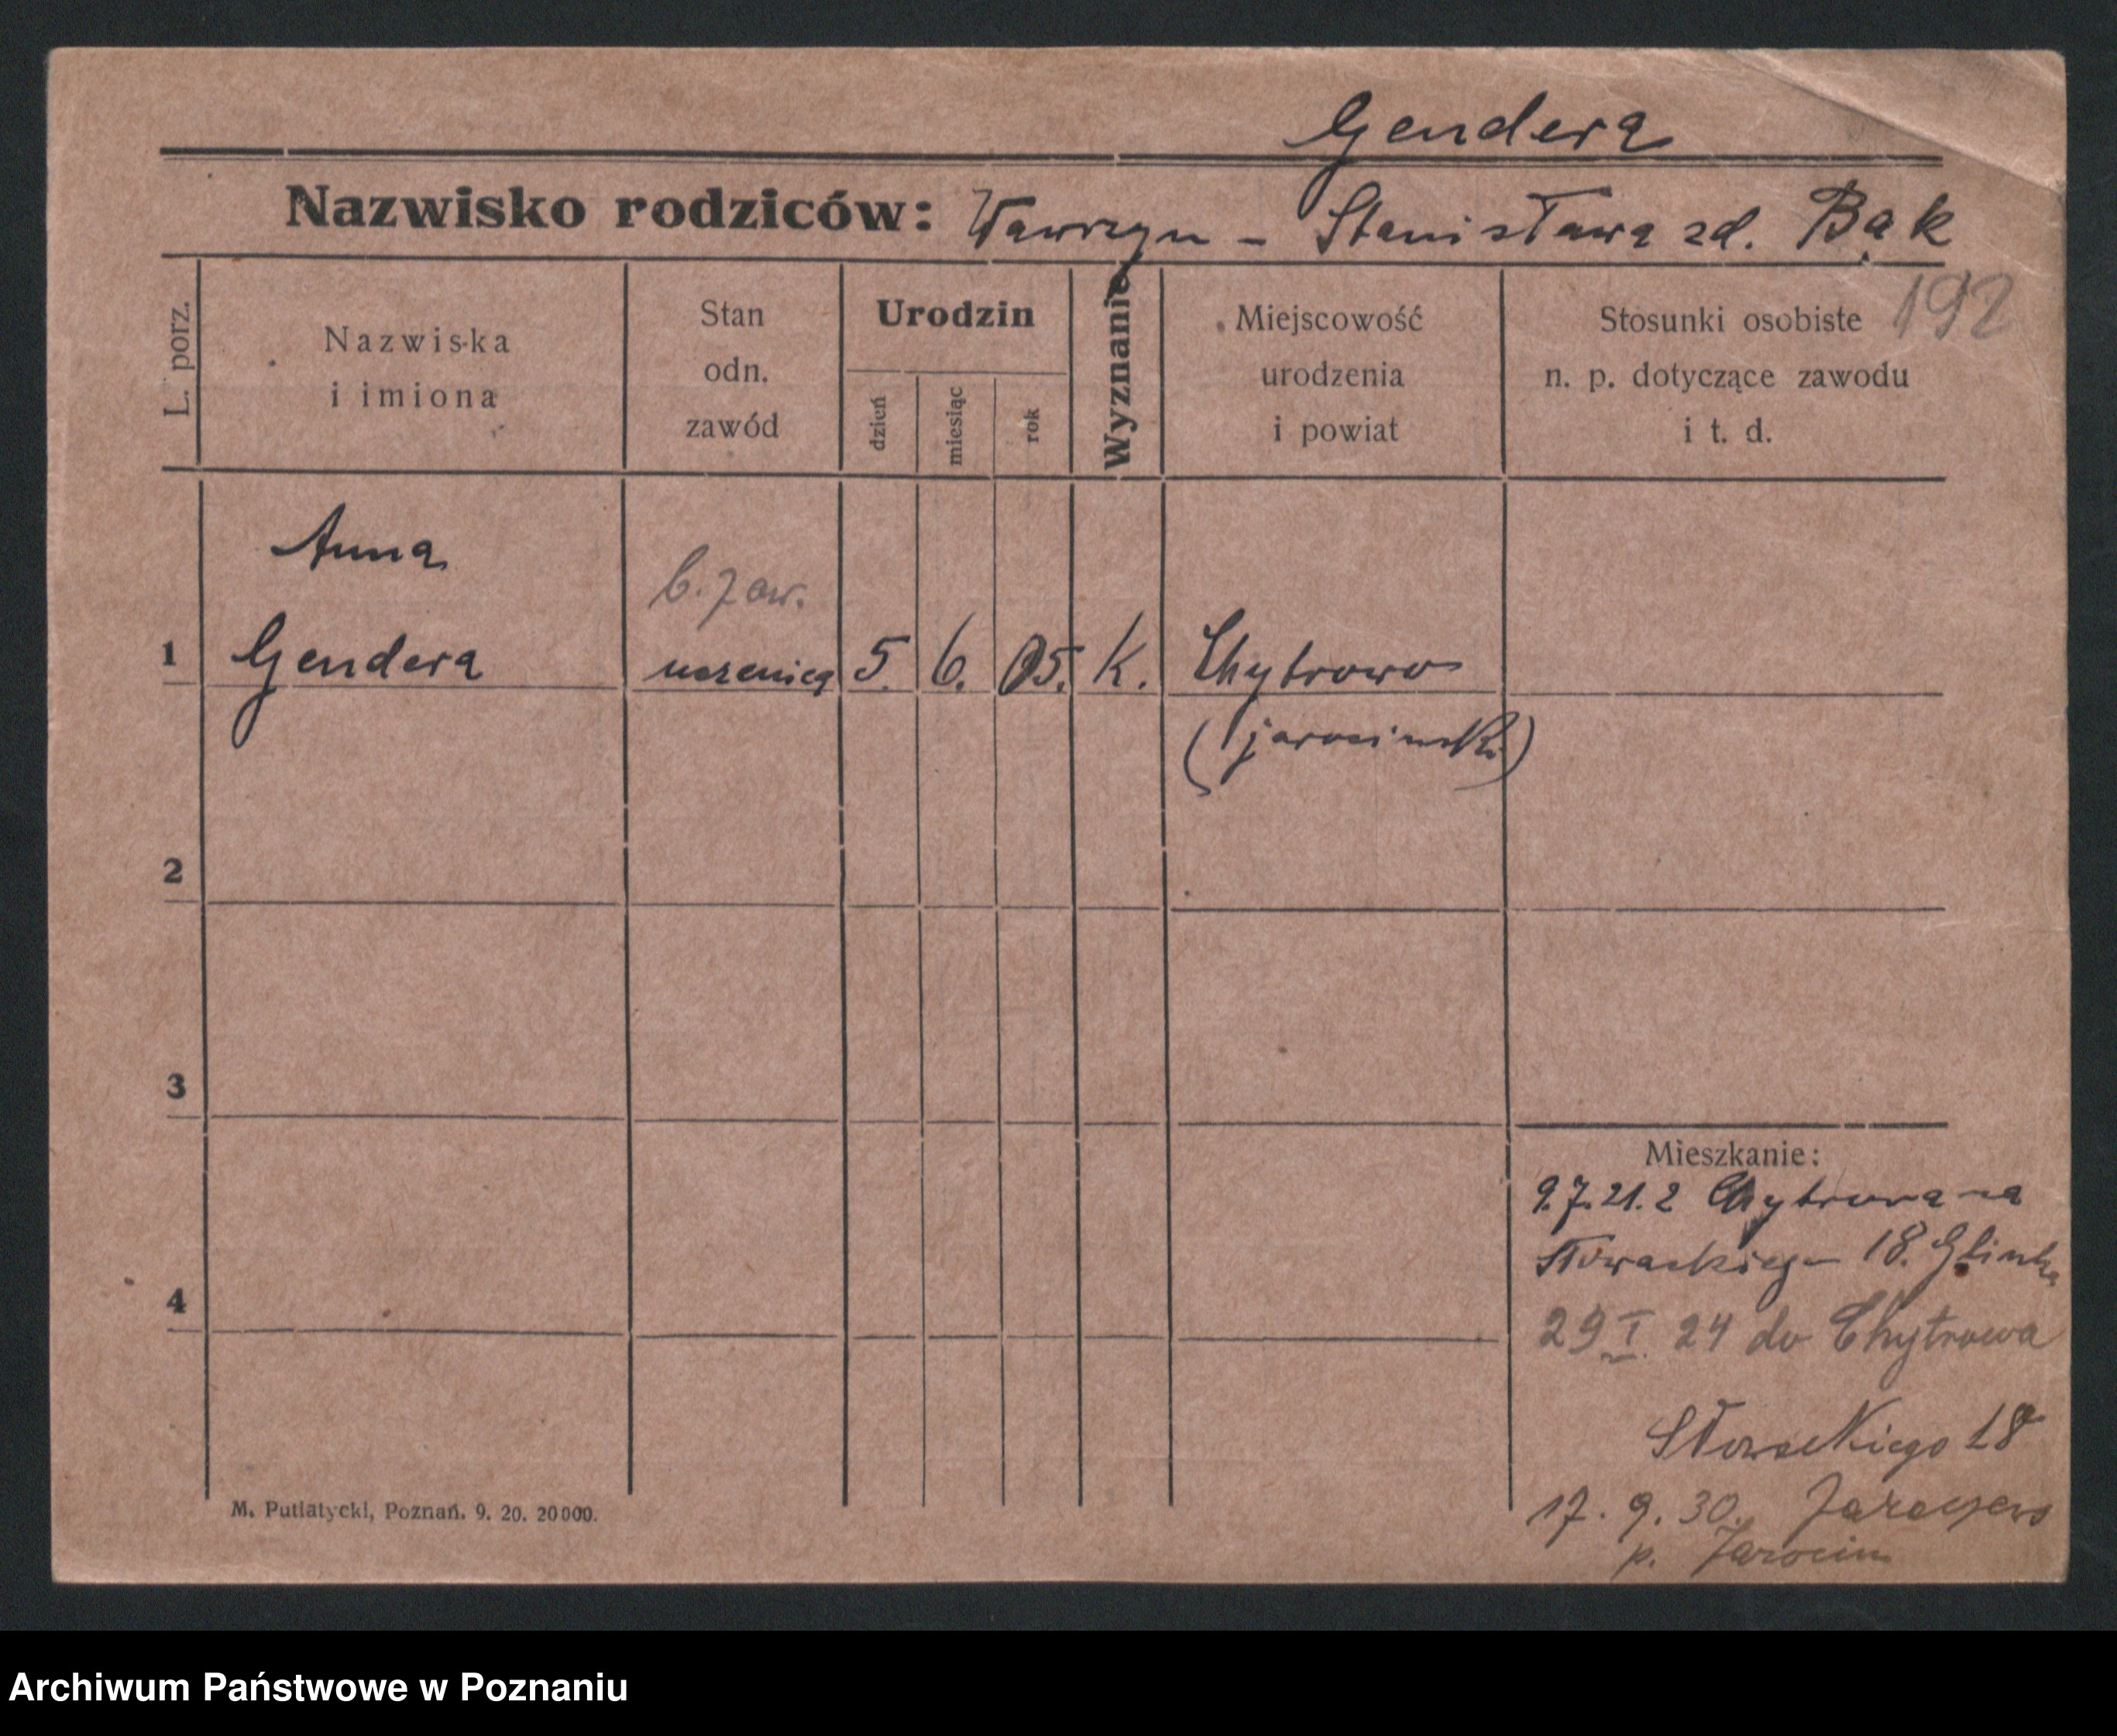 Gendera
Nazwisko rodziców: Wawrzyn - Stanisława zd. Bąk
192
L. porz.
Nazwiska
i imiona
Stan
odn.
zawód
Urodzin
dzień
miesiąc
rok
Wyznanie
Miejscowość
urodzenia
i powiat
Stosunki osobiste
n. p. dotyczące zawodu
i t. d.
Anna
b. zaw.
1 Gendera uczenica 5. 6. 05. K. Chytrowo
(jarociński)
2
3
Mieszkanie:
9.7.21. z Chytrowa na
Słowackiego 18. Glinka
4
29 I. 24 do Chytrowa
Słowackiego 18
17. 9. 30. Jaraczewo
p. Jarocin
M. Putiatycki, Poznań. 9. 20. 20000.
Archiwum Państwowe w Poznaniu